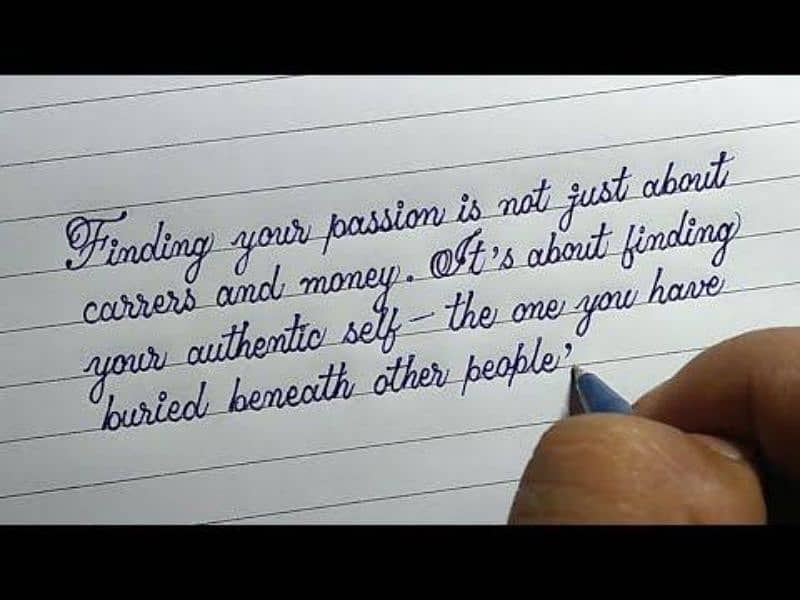 Finding your passion is not just about
carrers and money. It's about finding
your authentic self – the one you have
buried beneath other people'